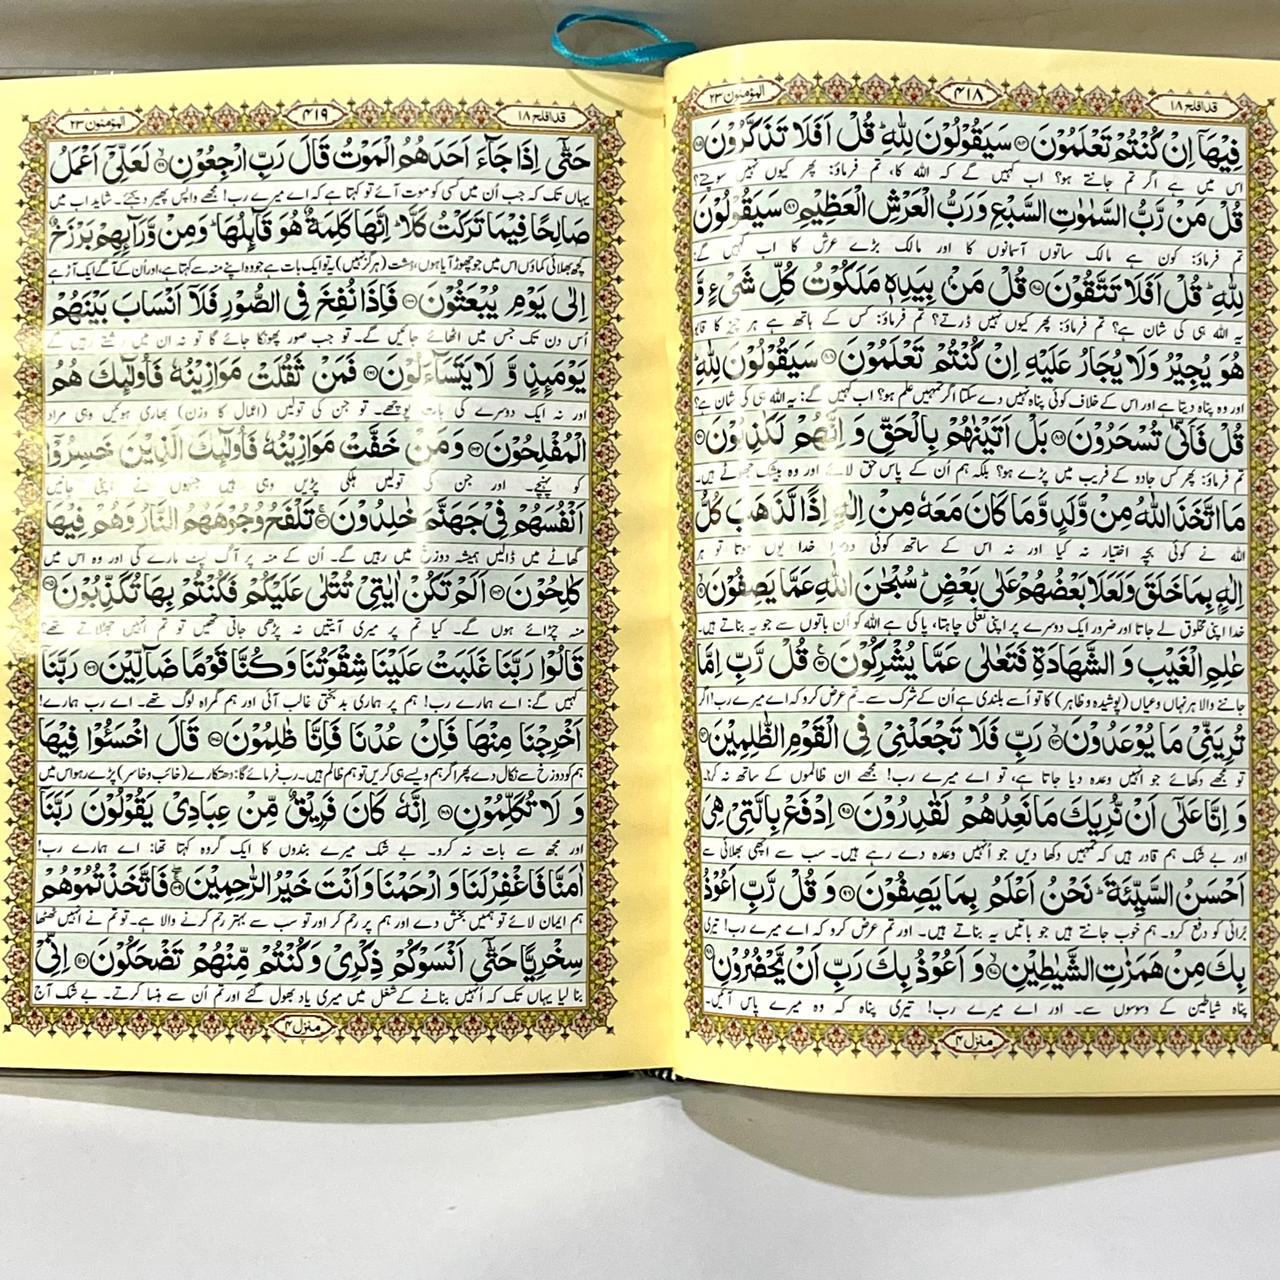 قد افلح ١٨
٤١٨
المؤمنون ٢٣
فِيْهَاۤ اِنْ كُنْتُمْ تَعْلَمُوْنَ ﴿۸۴﴾ سَيَقُوْلُوْنَ لِلّٰهِ ؕ قُلْ اَفَلَا تَذَكَّرُوْنَ ﴿۸۵﴾
اس میں ہے اگر تم جانتے ہو؟ اب کہیں گے کہ اللہ کا، تم فرماؤ: پھر کیوں نہیں سوچتے؟
قُلْ مَنْ رَّبُّ السَّمٰوٰتِ السَّبْعِ وَرَبُّ الْعَرْشِ الْعَظِيْمِ ﴿۸۶﴾ سَيَقُوْلُوْنَ
تم فرماؤ: کون ہے مالک ساتوں آسمانوں کا اور مالک بڑے عرش کا اب کہیں گے:
لِلّٰهِ ؕ قُلْ اَفَلَا تَتَّقُوْنَ ﴿۸۷﴾ قُلْ مَنْۢ بِيَدِهٖ مَلَكُوْتُ كُلِّ شَيْءٍ وَّ
یہ اللہ ہی کی شان ہے؟ تم فرماؤ: پھر کیوں نہیں ڈرتے؟ تم فرماؤ: کس کے ہاتھ ہے ہر چیز کا قابو
هُوَ يُجِيْرُ وَلَا يُجَارُ عَلَيْهِ اِنْ كُنْتُمْ تَعْلَمُوْنَ ﴿۸۸﴾ سَيَقُوْلُوْنَ لِلّٰهِ ؕ
اور وہ پناہ دیتا ہے اور اس کے خلاف کوئی پناہ نہیں دے سکتا اگر تمہیں علم ہو؟ اب کہیں گے: یہ اللہ ہی کی شان ہے؟
قُلْ فَاَنّٰى تُسْحَرُوْنَ ﴿۸۹﴾ بَلْ اَتَيْنٰهُمْ بِالْحَقِّ وَ اِنَّهُمْ لَكٰذِبُوْنَ ﴿۹۰﴾
تم فرماؤ: پھر کس جادو کے فریب میں پڑے ہو؟ بلکہ ہم اُن کے پاس حق لائے اور وہ بیشک جھوٹے ہیں۔
مَا اتَّخَذَ اللّٰهُ مِنْ وَّلَدٍ وَّمَا كَانَ مَعَهٗ مِنْ اِلٰهٍ اِذًا لَّذَهَبَ كُلُّ
اللہ نے کوئی بچہ اختیار نہ کیا اور نہ اس کے ساتھ کوئی دوسرا خدا یوں ہوتا تو ہر
اِلٰهٍۭ بِمَا خَلَقَ وَلَعَلَا بَعْضُهُمْ عَلٰى بَعْضٍ ؕ سُبْحٰنَ اللّٰهِ عَمَّا يَصِفُوْنَ ﴿۹۱﴾
خدا اپنی مخلوق لے جاتا اور ضرور ایک دوسرے پر اپنی تعلی چاہتا، پاکی ہے اللہ کو اُن باتوں سے جو یہ بناتے ہیں۔
عٰلِمِ الْغَيْبِ وَ الشَّهَادَةِ فَتَعٰلٰى عَمَّا يُشْرِكُوْنَ ﴿۹۲﴾ قُلْ رَّبِّ اِمَّا
جاننے والا ہر نہاں و عیاں (پوشیدہ و ظاہر) کا تو اُسے بلندی ہے اُن کے شرک سے۔ تم عرض کرو کہ اے میرے رب! اگر
تُرِيَنِّيْ مَا يُوْعَدُوْنَ ﴿۹۳﴾ رَبِّ فَلَا تَجْعَلْنِيْ فِي الْقَوْمِ الظّٰلِمِيْنَ ﴿۹۴﴾
تو مجھے دکھائے جو انہیں وعدہ دیا جاتا ہے، تو اے میرے رب! مجھے ان ظالموں کے ساتھ نہ کرنا۔
وَ اِنَّا عَلٰۤى اَنْ نُّرِيَكَ مَا نَعِدُهُمْ لَقٰدِرُوْنَ ﴿۹۵﴾ اِدْفَعْ بِالَّتِيْ هِيَ
اور بے شک ہم قادر ہیں کہ تمہیں دکھا دیں جو اُنہیں وعدہ دے رہے ہیں۔ سب سے اچھی بھلائی سے
اَحْسَنُ السَّيِّئَةَ ؕ نَحْنُ اَعْلَمُ بِمَا يَصِفُوْنَ ﴿۹۶﴾ وَ قُلْ رَّبِّ اَعُوْذُ
برائی کو دفع کرو۔ ہم خوب جانتے ہیں جو باتیں یہ بناتے ہیں۔ اور تم عرض کرو کہ اے میرے رب! تیری
بِكَ مِنْ هَمَزٰتِ الشَّيٰطِيْنِ ﴿۹۷﴾ وَ اَعُوْذُ بِكَ رَبِّ اَنْ يَّحْضُرُوْنِ ﴿۹۸﴾
پناہ شیاطین کے وسوسوں سے۔ اور اے میرے رب! تیری پناہ کہ وہ میرے پاس آئیں۔
منزل ٤
قد افلح ١٨
٤١٩
المؤمنون ٢٣
حَتّٰۤى اِذَا جَآءَ اَحَدَهُمُ الْمَوْتُ قَالَ رَبِّ ارْجِعُوْنِ ﴿۹۹﴾ لَعَلِّيْۤ اَعْمَلُ
یہاں تک کہ جب اُن میں کسی کو موت آئے تو کہتا ہے کہ اے میرے رب! مجھے واپس پھیر دیجئے۔ شاید اب میں
صَالِحًا فِيْمَا تَرَكْتُ كَلَّا ؕ اِنَّهَا كَلِمَةٌ هُوَ قَآىِٕلُهَا ؕ وَمِنْ وَّرَآىِٕهِمْ بَرْزَخٌ
کچھ بھلائی کماؤں اس میں جو چھوڑ آیا ہوں، ہشت (ہرگز نہیں) یہ تو ایک بات ہے جو وہ اپنے منہ سے کہتا ہے، اور اُن کے آگے ایک آڑ ہے
اِلٰى يَوْمِ يُبْعَثُوْنَ ﴿۱۰۰﴾ فَاِذَا نُفِخَ فِي الصُّوْرِ فَلَاۤ اَنْسَابَ بَيْنَهُمْ
اُس دن تک جس میں اٹھائے جائیں گے۔ تو جب صور پھونکا جائے گا تو نہ ان میں رشتے رہیں گے
يَوْمَىِٕذٍ وَّ لَا يَتَسَآءَلُوْنَ ﴿۱۰۱﴾ فَمَنْ ثَقُلَتْ مَوَازِيْنُهٗ فَاُولٰٓىِٕكَ هُمُ
اور نہ ایک دوسرے کی بات پوچھے۔ تو جن کی تولیں (اعمال کا وزن) بھاری ہوئیں وہی مراد
الْمُفْلِحُوْنَ ﴿۱۰۲﴾ وَمَنْ خَفَّتْ مَوَازِيْنُهٗ فَاُولٰٓىِٕكَ الَّذِيْنَ خَسِرُوْۤا
کو پہنچے۔ اور جن کی تولیں ہلکی پڑیں وہی ہیں جنہوں نے اپنی جانیں
اَنْفُسَهُمْ فِيْ جَهَنَّمَ خٰلِدُوْنَ ﴿۱۰۳﴾ تَلْفَحُ وُجُوْهَهُمُ النَّارُ وَهُمْ فِيْهَا
گھاٹے میں ڈالیں ہمیشہ دوزخ میں رہیں گے۔ اُن کے منہ پر آگ لپٹ مارے گی اور وہ اس میں
كٰلِحُوْنَ ﴿۱۰۴﴾ اَلَمْ تَكُنْ اٰيٰتِيْ تُتْلٰى عَلَيْكُمْ فَكُنْتُمْ بِهَا تُكَذِّبُوْنَ ﴿۱۰۵﴾
منہ چڑائے ہوں گے۔ کیا تم پر میری آیتیں نہ پڑھی جاتی تھیں تو تم انہیں جھٹلاتے تھے؟
قَالُوْا رَبَّنَا غَلَبَتْ عَلَيْنَا شِقْوَتُنَا وَكُنَّا قَوْمًا ضَآلِّيْنَ ﴿۱۰۶﴾ رَبَّنَاۤ
کہیں گے: اے ہمارے رب! ہم پر ہماری بدبختی غالب آئی اور ہم گمراہ لوگ تھے۔ اے رب ہمارے!
اَخْرِجْنَا مِنْهَا فَاِنْ عُدْنَا فَاِنَّا ظٰلِمُوْنَ ﴿۱۰۷﴾ قَالَ اخْسَـُٔوْا فِيْهَا
ہم کو دوزخ سے نکال دے پھر اگر ہم ویسے ہی کریں تو ہم ظالم ہیں۔ رب فرمائے گا: دھتکارے (خائب و خاسر) پڑے رہو اس میں
وَ لَا تُكَلِّمُوْنِ ﴿۱۰۸﴾ اِنَّهٗ كَانَ فَرِيْقٌ مِّنْ عِبَادِيْ يَقُوْلُوْنَ رَبَّنَاۤ
اور مجھ سے بات نہ کرو۔ بے شک میرے بندوں کا ایک گروہ کہتا تھا: اے ہمارے رب!
اٰمَنَّا فَاغْفِرْ لَنَا وَ ارْحَمْنَا وَاَنْتَ خَيْرُ الرّٰحِمِيْنَ ﴿۱۰۹﴾ فَاتَّخَذْتُمُوْهُمْ
ہم ایمان لائے تو ہمیں بخش دے اور ہم پر رحم کر اور تو سب سے بہتر رحم کرنے والا ہے۔ تو تم نے انہیں ٹھٹھا
سِخْرِيًّا حَتّٰۤى اَنْسَوْكُمْ ذِكْرِيْ وَكُنْتُمْ مِّنْهُمْ تَضْحَكُوْنَ ﴿۱۱۰﴾ اِنِّيْ
بنا لیا یہاں تک کہ اُنہیں بنانے کے شغل میں میری یاد بھول گئے اور تم اُن سے ہنسا کرتے۔ بے شک آج
منزل ٤